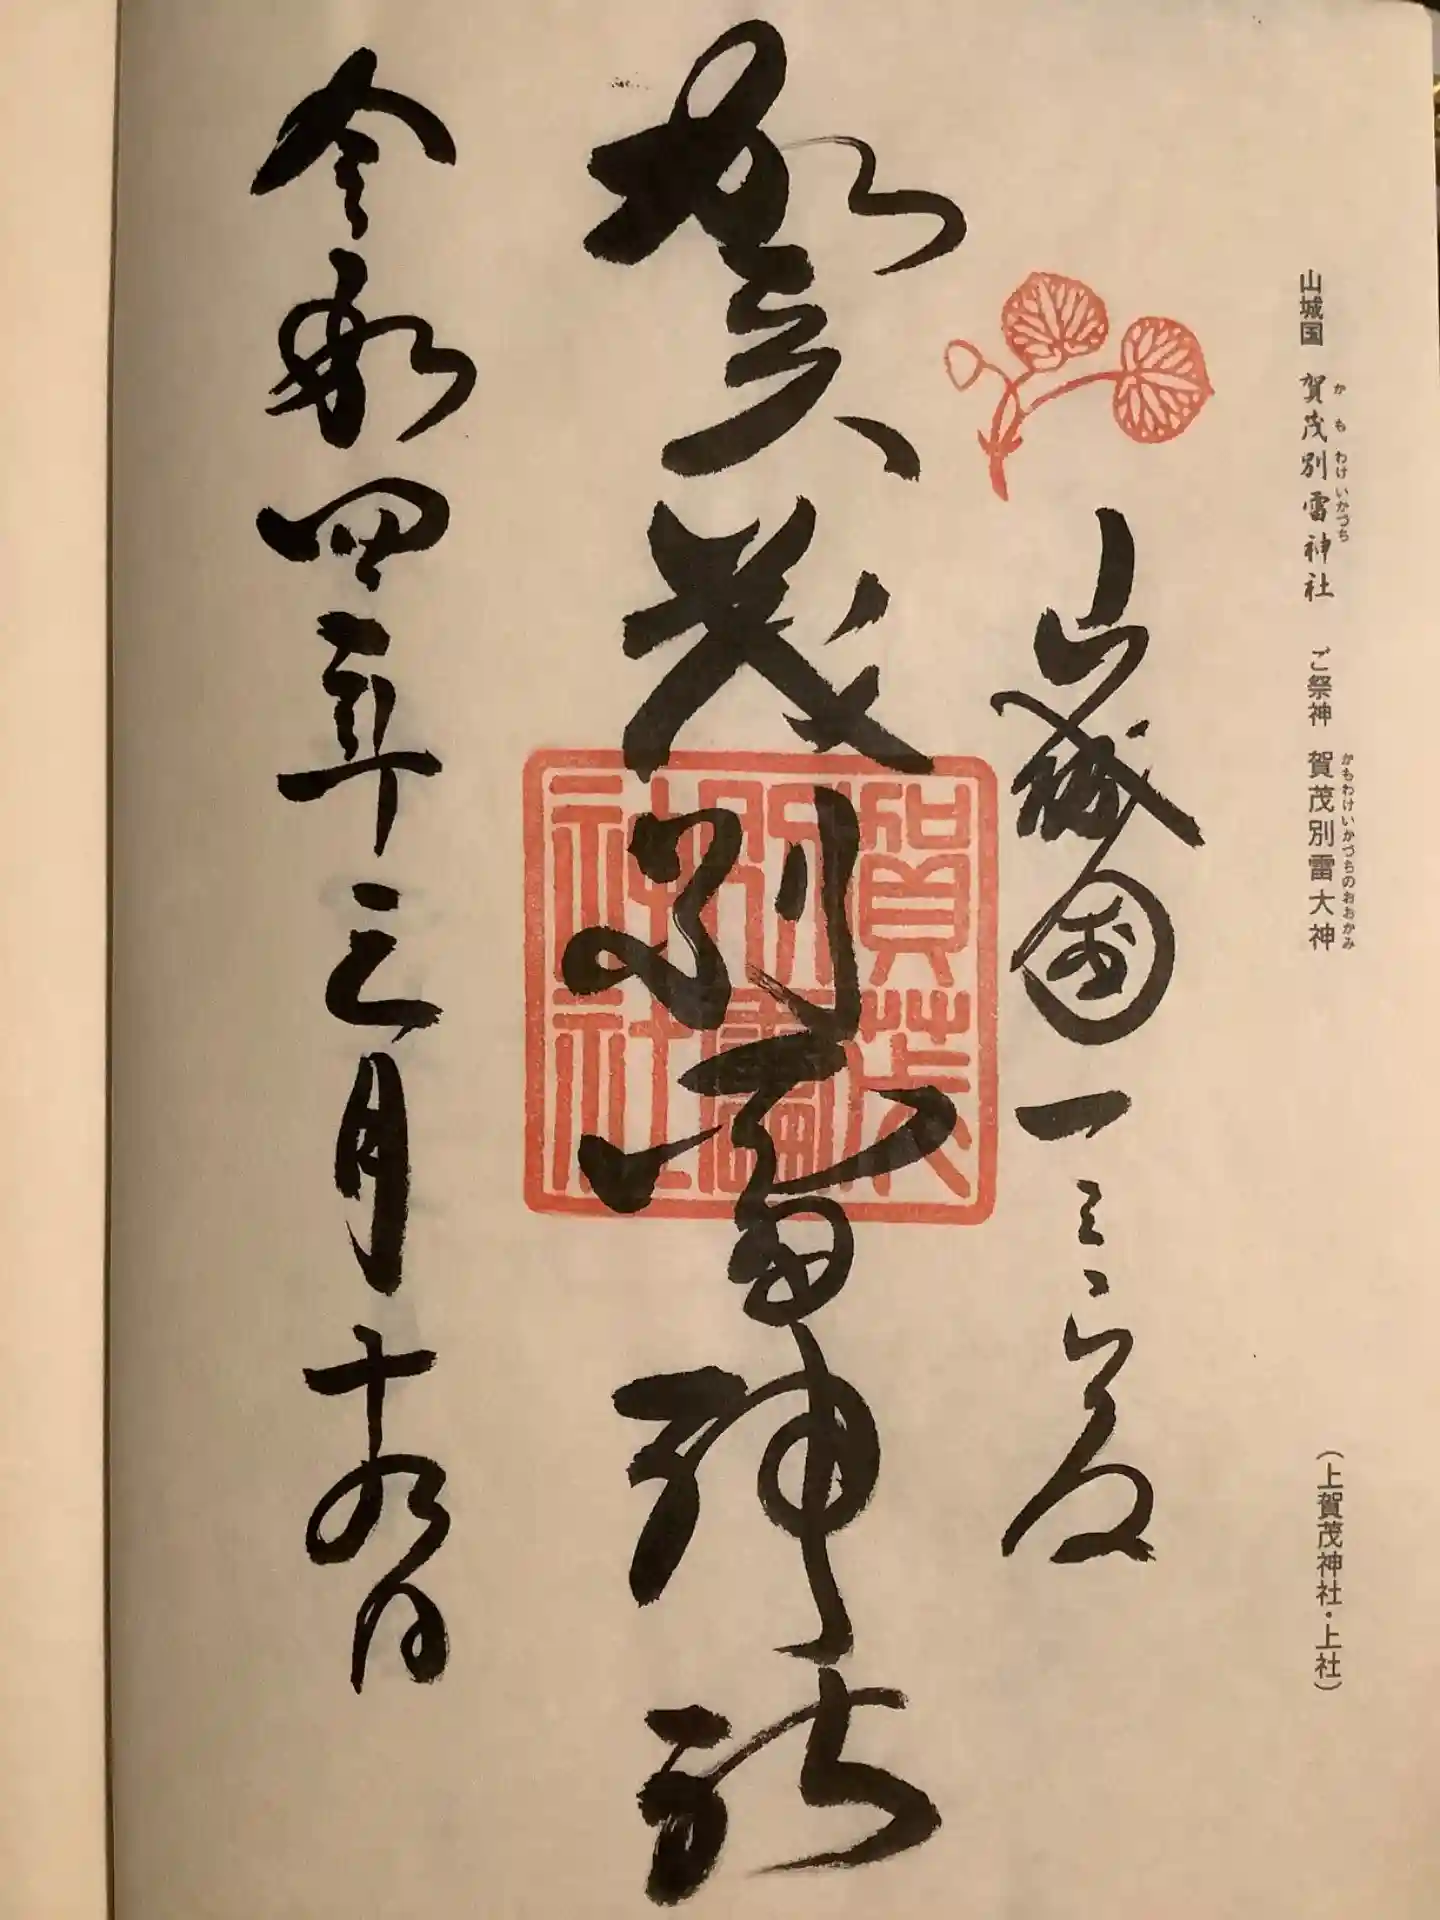 山城国 賀茂別雷神社 ご祭神 賀茂別雷大神 (上賀茂神社・上社)
かもわけいかづち
かもわけいかづちのおおかみ
山城國一之宮
賀茂別雷神社
賀茂
別雷
神社
令和四年三月十九日